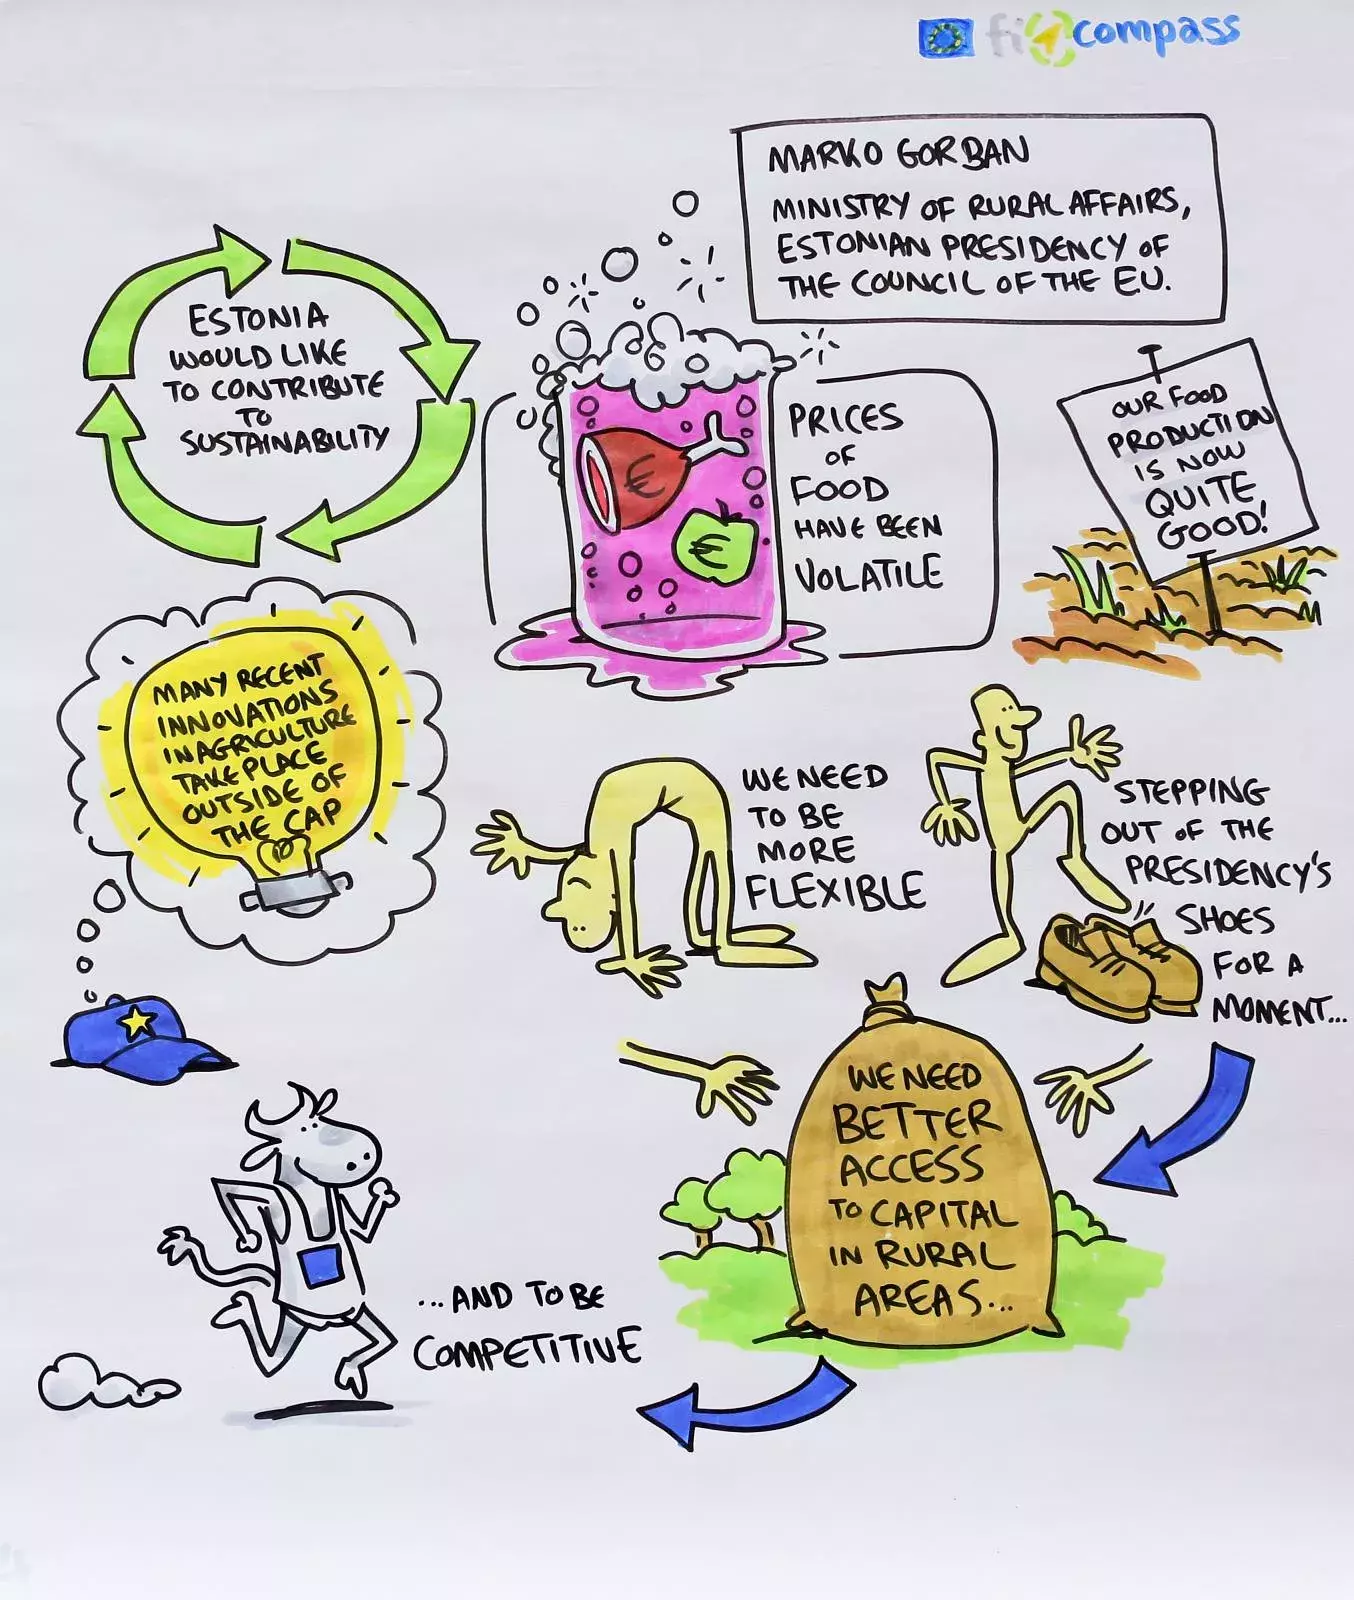 fi compass
MARKO GORBAN
MINISTRY OF RURAL AFFAIRS,
ESTONIAN PRESIDENCY OF
THE COUNCIL OF THE E.U.
ESTONIA
WOULD LIKE
TO CONTRIBUTE
TO
SUSTAINABILITY
PRICES
OF
FOOD
HAVE BEEN
VOLATILE
€
€
OUR FOOD
PRODUCTION
IS NOW
QUITE
GOOD!
MANY RECENT
INNOVATIONS
IN AGRICULTURE
TAKE PLACE
OUTSIDE OF
THE CAP
WE NEED
TO BE
MORE
FLEXIBLE
STEPPING
OUT OF THE
PRESIDENCY'S
SHOES
FOR A
MOMENT...
WE NEED
BETTER
ACCESS
TO CAPITAL
IN RURAL
AREAS...
...AND TO BE
COMPETITIVE